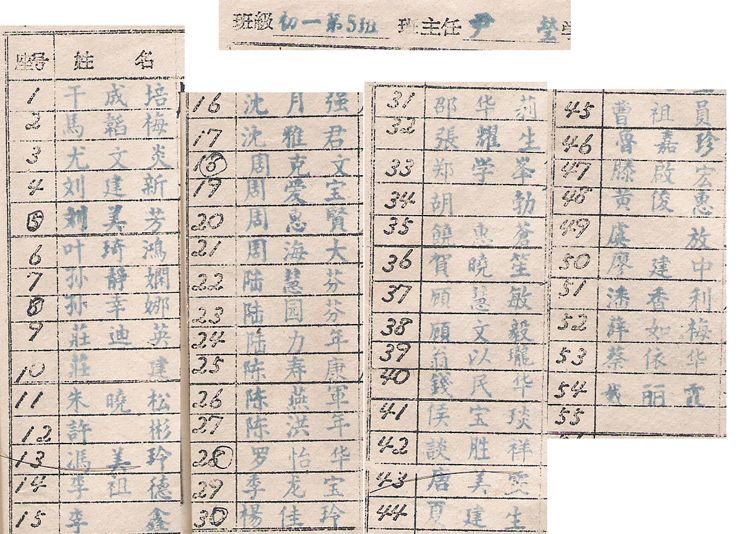 班級 初一第5班 班主任 尹 莹
座号 姓 名
1 干成培
2 馬韜梅
3 尤文炎
4 刘建新
5 刘昊芳
6 叶琦鴻
7 孙静嫻
8 孙幸娜
9 莊迪英
10 莊建
11 朱曉松
12 許彬
13 馮美玲
14 李祖德
15 李鑫
16 沈月强
17 沈雅君
18 周克文
19 周爱宝
20 周惠賢
21 周海大
22 陆慧芬
23 陆园芬
24 陆力年
25 陈寿康
26 陈燕軍
27 陈洪年
28 罗怡华
29 季龙宝
30 楊佳玲
31 邵华莉
32 張耀生
33 郑学举
34 胡勃
35 饒惠蒼
36 賀曉笙
37 顾慧敏
38 顾文毅
39 翁以瓏
40 錢民华
41 侯宝琰
42 談胜祥
43 唐美雯
44 夏建生
45 曹祖員
46 曾嘉珍
47 滕啟宏
48 黄俊惠
49 虞放
50 廖建中
51 潘香利
52 薛如梅
53 蔡依华
54 丽霞
55